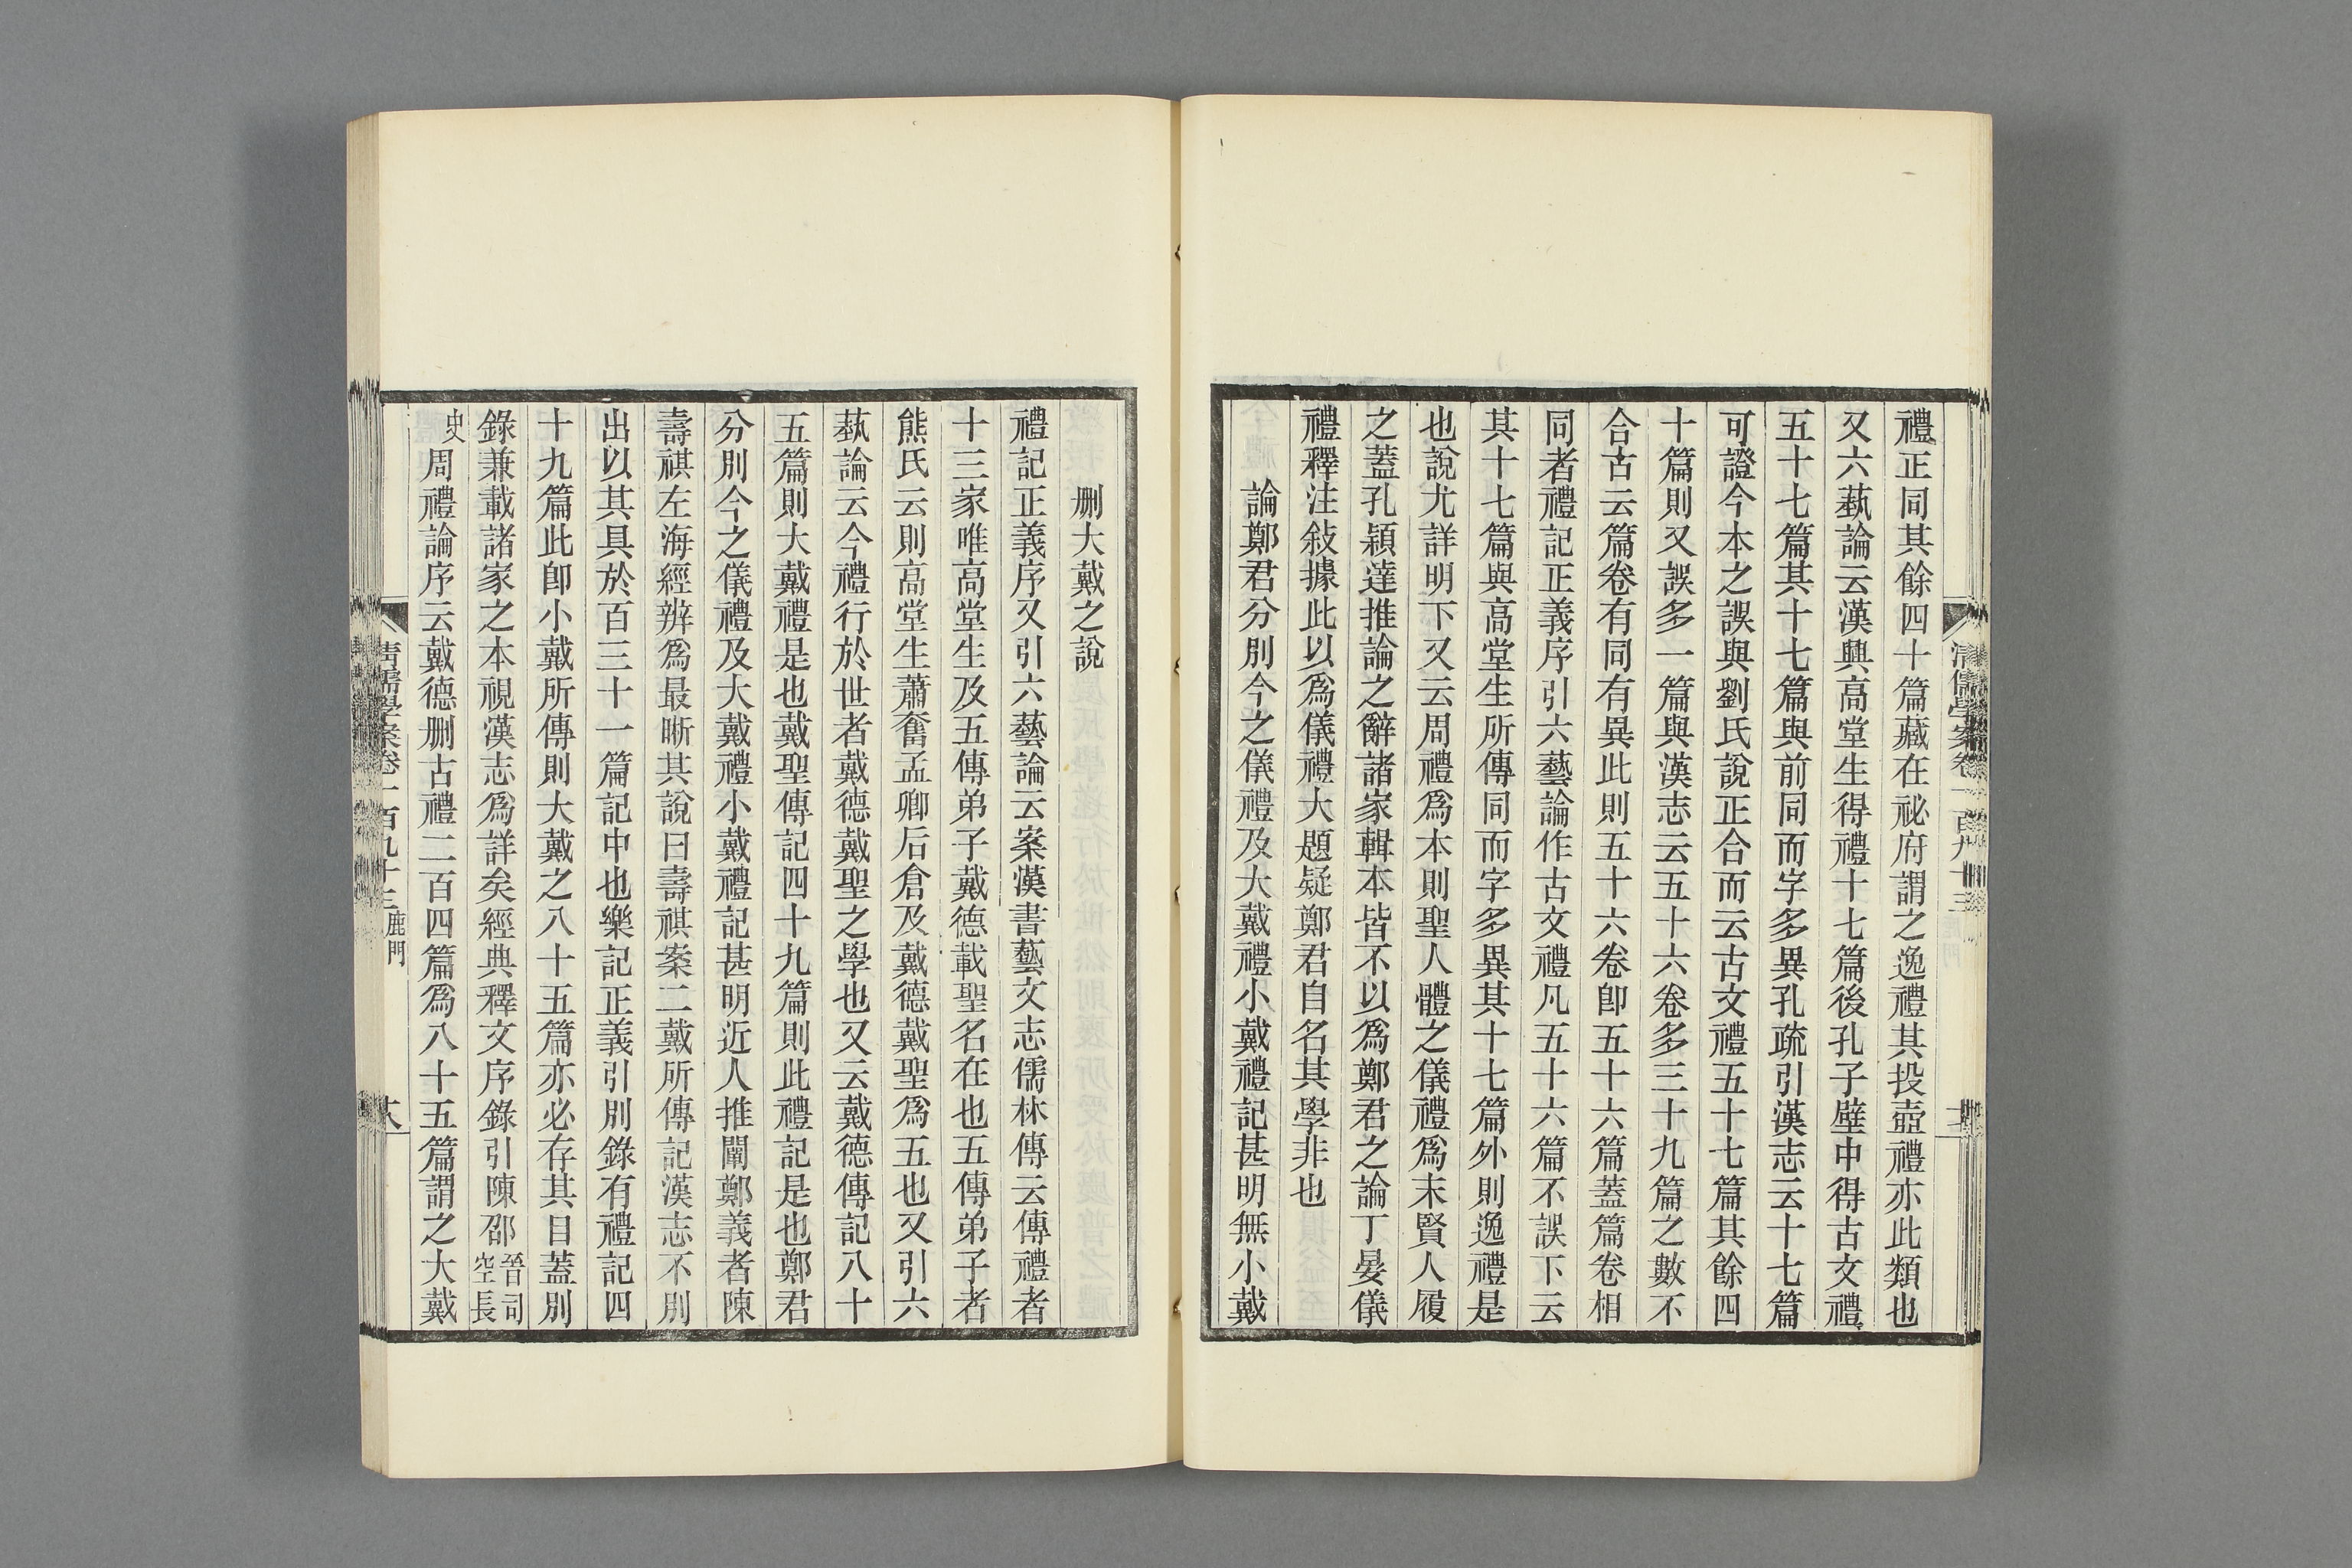 禮正同其餘四十篇藏在祕府謂之逸禮其投壺禮亦此類也
又六蓺論云漢興高堂生得禮十七篇後孔子壁中得古文禮
五十七篇其十七篇與前同而字多異孔疏引漢志云十七篇
可證今本之誤與劉氏說正合而云古文禮五十七篇其餘四
十篇則又誤多一篇與漢志云五十六卷多三十九篇之數不
合古云篇卷有同有異此則五十六卷卽五十六篇蓋篇卷相
同者禮記正義序引六藝論作古文禮凡五十六篇不誤下云
其十七篇與高堂生所傳同而字多異其十七篇外則逸禮是
也說尤詳明下又云周禮爲本則聖人體之儀禮爲末賢人履
之蓋孔穎達推論之辭諸家輯本皆不以爲鄭君之論丁晏儀
禮釋注敍據此以爲儀禮大題疑鄭君自名其學非也
論鄭君分別今之儀禮及大戴禮小戴禮記甚明無小戴
刪大戴之說
禮記正義序又引六藝論云案漢書藝文志儒林傳云傳禮者
十三家唯高堂生及五傳弟子戴德戴聖名在也五傳弟子者
熊氏云則高堂生蕭奮孟卿后倉及戴德戴聖爲五也又引六
蓺論云今禮行於世者戴德戴聖之學也又云戴德傳記八十
五篇則大戴禮是也戴聖傳記四十九篇則此禮記是也鄭君
分別今之儀禮及大戴禮小戴禮記甚明近人推闡鄭義者陳
壽祺左海經辨爲最晰其說曰壽祺案二戴所傳記漢志不別
出以其具於百三十一篇記中也樂記正義引別錄有禮記四
十九篇此卽小戴所傳則大戴之八十五篇亦必存其目蓋別
錄兼載諸家之本視漢志爲詳矣經典釋文序錄引陳邵晉司空長
史周禮論序云戴德刪古禮二百四篇爲八十五篇謂之大戴
清儒學案卷一百九十三 鹿門